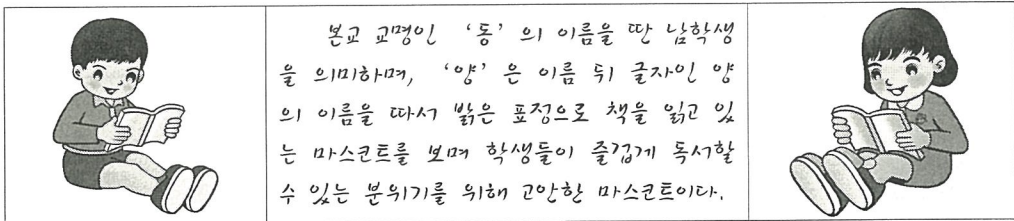 본교 교명인 '동'의 이름을 딴 남학생
을 의미하며, '양'은 이름 뒤 글자인 양
의 이름을 따서 밝은 표정으로 책을 읽고 있
는 마스코트를 보며 학생들이 즐겁게 독서할
수 있는 분위기를 위해 고안한 마스코트이다.